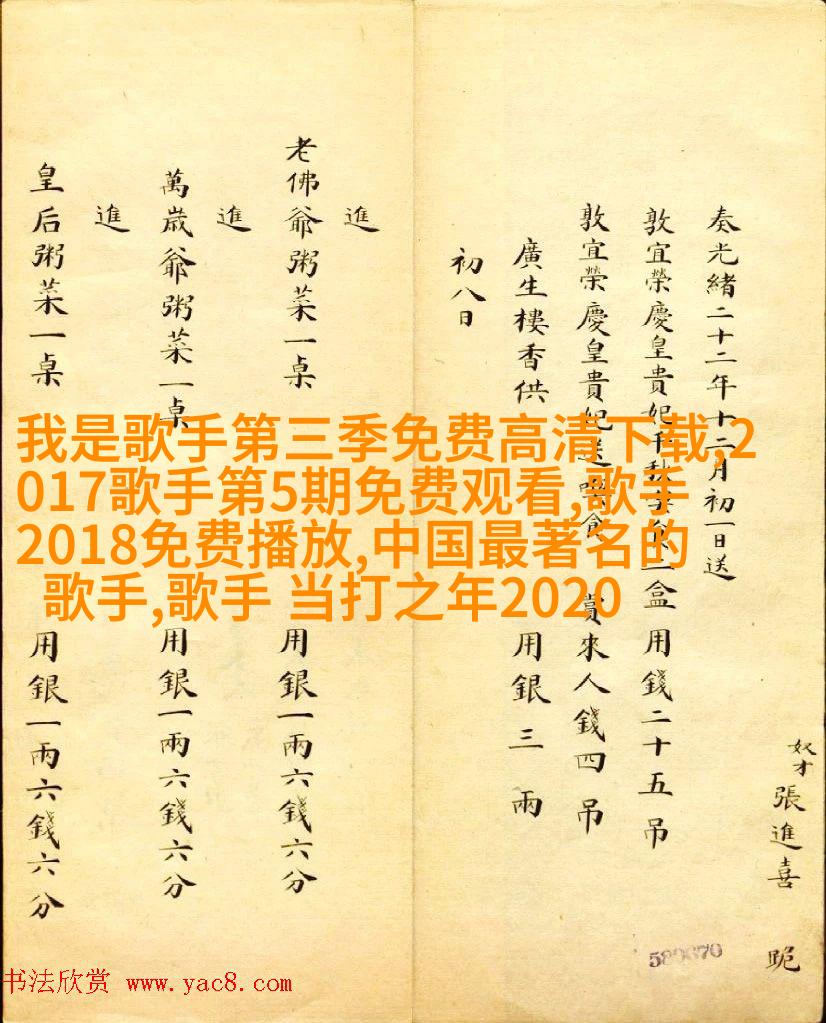 奴才張進喜 跪
奏光緒二十二年十二月初一日送
敦宜榮慶皇貴妃千秋 一盒用錢二十五吊
敦宜榮慶皇貴妃送 食 賞來人錢四吊
廣生樓香供 用銀三兩
初八日
進
老佛爺粥菜一桌 用銀一兩六錢六分
進
萬歲爺粥菜一桌 用銀一兩六錢六分
進
皇后粥菜一桌 用銀一兩六錢六分
我是歌手第三季免费高清下载,2
017歌手第5期免费观看,歌手
2018免费播放,中国最著名的
歌手,歌手 当打之年2020
580670
书法欣赏 www.yac8.com